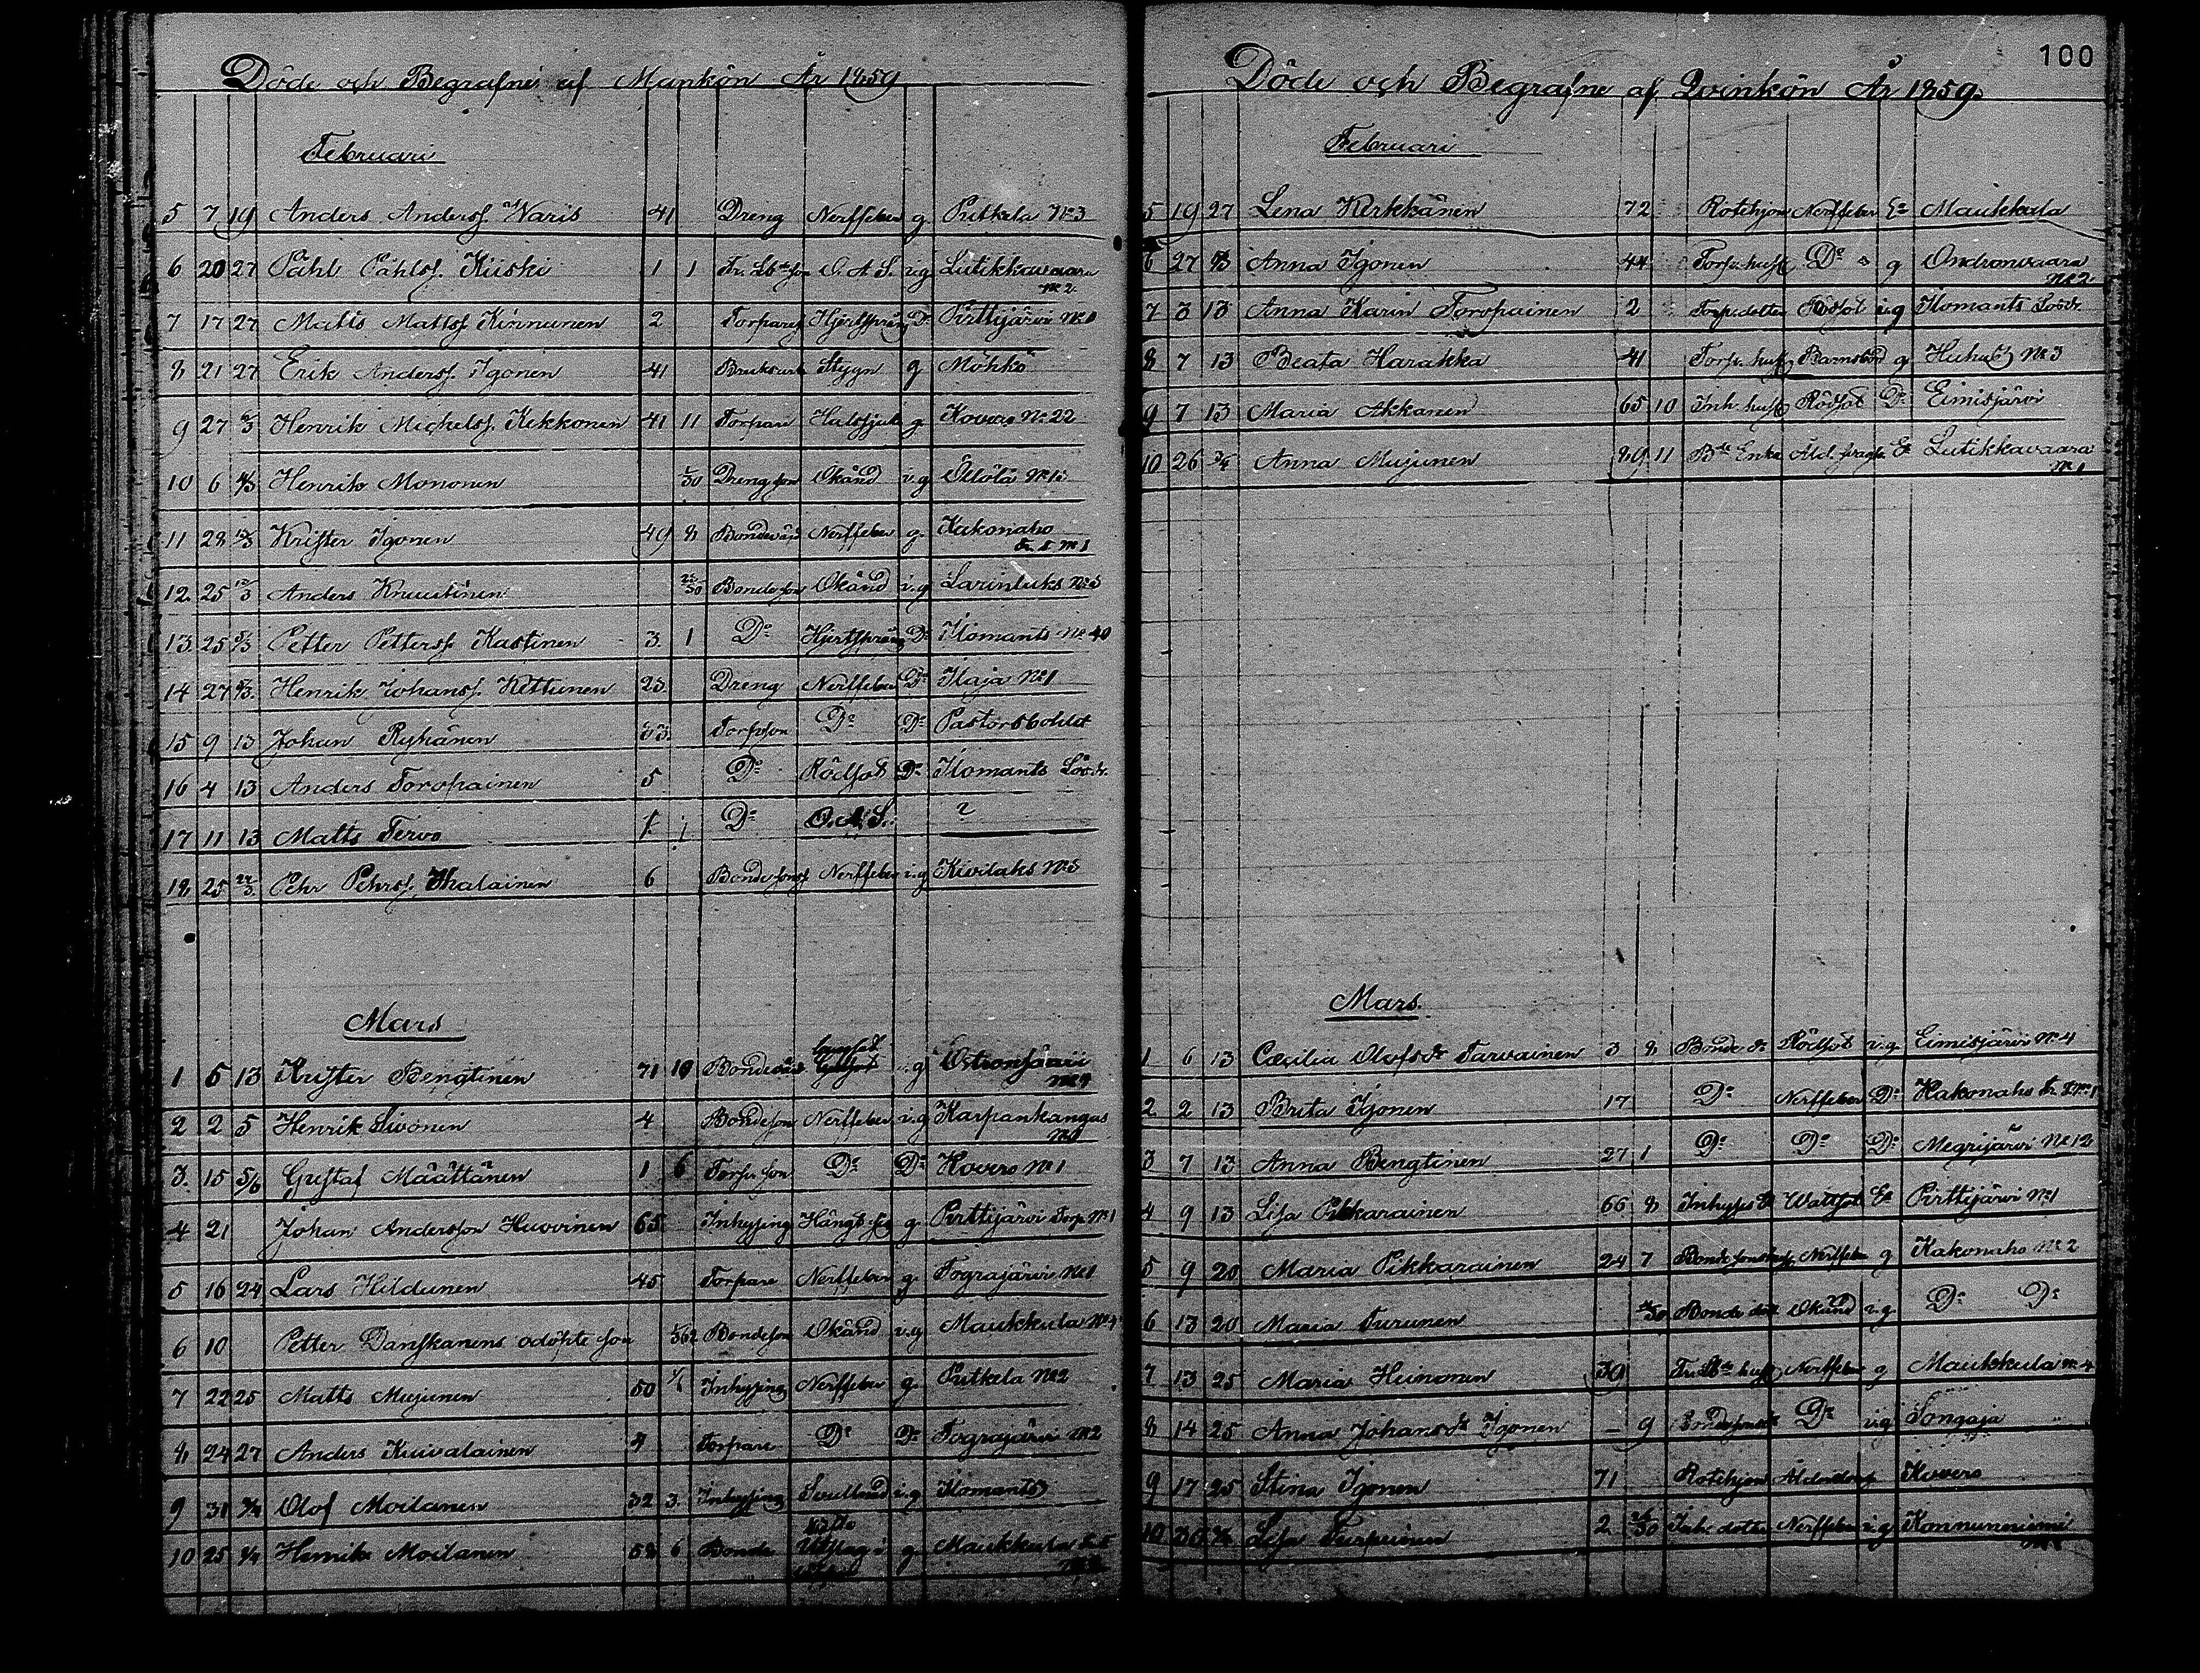 Döde och Begrafne af Mankön År 1859
Februari
5 7 19 Anders Anderss. Waris 41 Dreng Nerffeber g Putkela No 3
6 20 27 Påhl Påhlss. Kiiski 1 1 O. A. S. i.g Lutikkavaara
No 2.
7 17 27 Matts Mattss Kinnunen 2 Torpares Hjertsprång Do Pirttijärvi No 1
8 21 27 Erik Anderss. Igonen 41 Styng g Möhkö
9 27 6/3 Henrik Michelss. Kekkonen 41 11 Torpare g Kovero No 22
10 6 Henrik Mononen 1/30 Dreng son Okänd i.g
11 28 13/3 Krister Igonen 49 8 Nerffeber g. Kakonaho
No 1
12. 25 13/3 Anders Knuutinen Bonde son Okänd i.g
13. 25 Petter Petterss. Kastinen 3. 1 Do Hjertsprång Do Ilomants No 40
14 27 Henrik Johanss. Kettunen 23. Dreng Nerffeber Do Ilaja No 1
15 9 13 Johan Ryhänen Torpson Do Do Pastorsbohlet
16 4 13 Anders Toropainen 5 Do Rödsot Do Ilomants
17 11 13 Matts Tervo 1. 1 Do O. A. S. ?
18 25 27/3 Pehr Pehrss. Ihalainen 6 Bonde sons Nerffeber i.g Kivilaks No 5
Mars
1 6 13 Krister Bengtinen 71 10 g
2 2 5 Henrik Sivonen 4 Bondeson Nerffeber i.g Karpankangas
No 1
3. 15 5/6 Gustaf Määttänen 1 6 Torp. son Do Do Kovero No 1
4 21 Johan Andersson Huovinen 65 Inhysing g. Pirttijärvi Torp. No 1
5 16 24 Lars Hildunen 45 Torpare Nerffeber g. Tograjärvi No 1
6 10 Petter Danskanens odöpte son Bondeson Okänd i.g Maukkula No 4
7 22 25 Matts Mujunen 50 Inhysing Nerffeber g. Putkela No 2
8 24 27 Anders Kuivalainen 4 Torpare Do Do Tograjärvi No 2
9 31 Olof Moilanen 32 3. Inhysing i.g Ilomants
10 25 Henrik Moilanen 58 6 Bonde g Maukkula
100
Döde och Begrafne af Qvinkön År 1859.
Februari
5 19 27 Lena Kerkkänen 72 Rotehjon Nerffeber Ea Maukkula
6 27 6/3 Anna Igonen 44 Torp. hust Do g Ondronvaara
No 2.
7 3 13 Anna Karin Toropainen 2 Torp. dotter Rödsot i.g Ilomants
8 7 13 Beata Harakka 41 Torp. hust Barnsbörd g No 3
9 7 13 Maria Akkanen 65 10 Inh. hust Rödsot Do Eimisjärvi
10 26 3/4 Anna Mujunen 89 11 Enka Ea Lutikkavaara
No 1
Mars.
1 6 13 Cæcilia Olofsdr Tarvainen 3 8 Bonde dr Rödsot i.g. Eimisjärvi No 4
2 2 13 Brita Igonen 17 Do Nerffeber Do Kakonaho
3 7 13 Anna Bengtinen 27 1 Do Do Do Megrijärvi No 12
4 9 13 Lisa Pikkarainen 66 8 Wattsot Ea Pirttijärvi No 1
5 9 20 Maria Pikkarainen 24 7 Nerffeber g Kakonaho No 2
6 13 20 Maria Turunen Bonde dott Okänd i.g. Do Do
7 13 25 Maria Heinonen 39 Nerffeber g Maukkula No 4
8 14 25 Anna Johansdr Igonen – 9 Do i.g Songaja
9 17 25 Stina Igonen 71 Rotehjon Kovero
10 30 Lisa 2 Inh. dotter Nerffeber i.g Konnunniemi